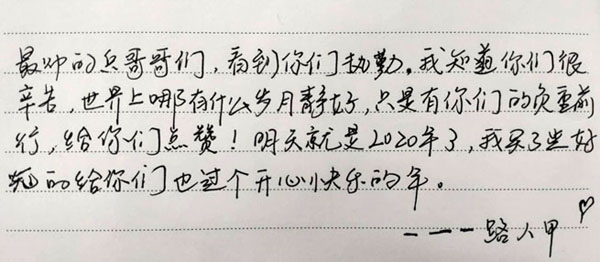 最帅的兵哥哥们，看到你们执勤。我知道你们很
辛苦，世界上哪有什么岁月静好，只是有你们的负重前
行，给你们点赞！明天就是2020年了，我买了些好
吃的给你们也过个开心快乐的年。
———路人甲♡